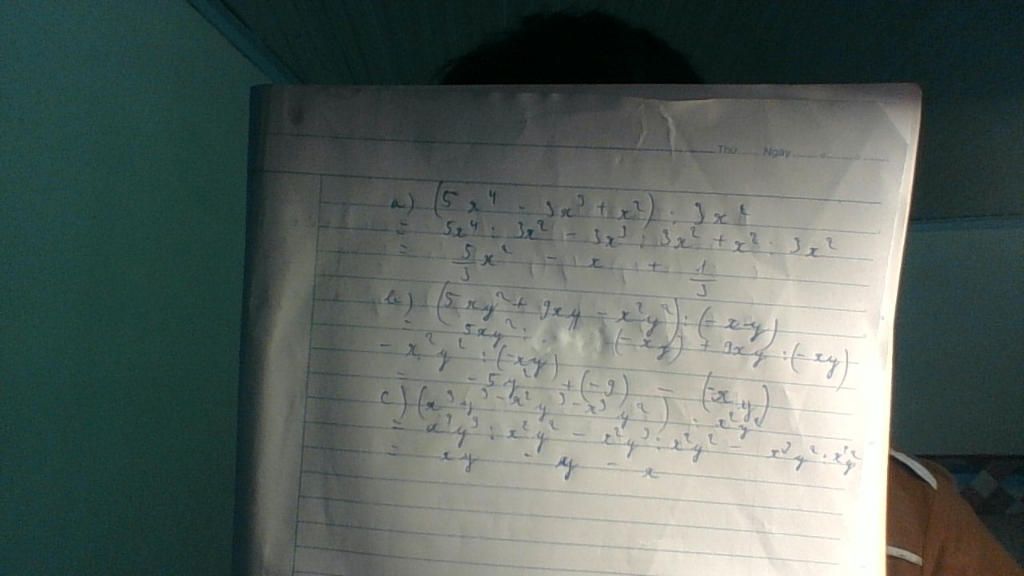 Thứ Ngày
a) (5x⁴ - 3x³ + x²) : 3x²
= 5x⁴ : 3x² - 3x³ : 3x² + x² : 3x²
= 5/3 x² - x + 1/3
b) (5xy² + 9xy - x²y²) : (-xy)
= 5xy² : (-xy) + 9xy : (-xy)
- x²y² : (-xy)
= -5y² + (-9) - (-xy)
c) (x³y³ - x²y³ - x³y²) : x²y²
= x³y³ : x²y² - x²y³ : x²y² - x³y² : x²y²
= xy - y - x